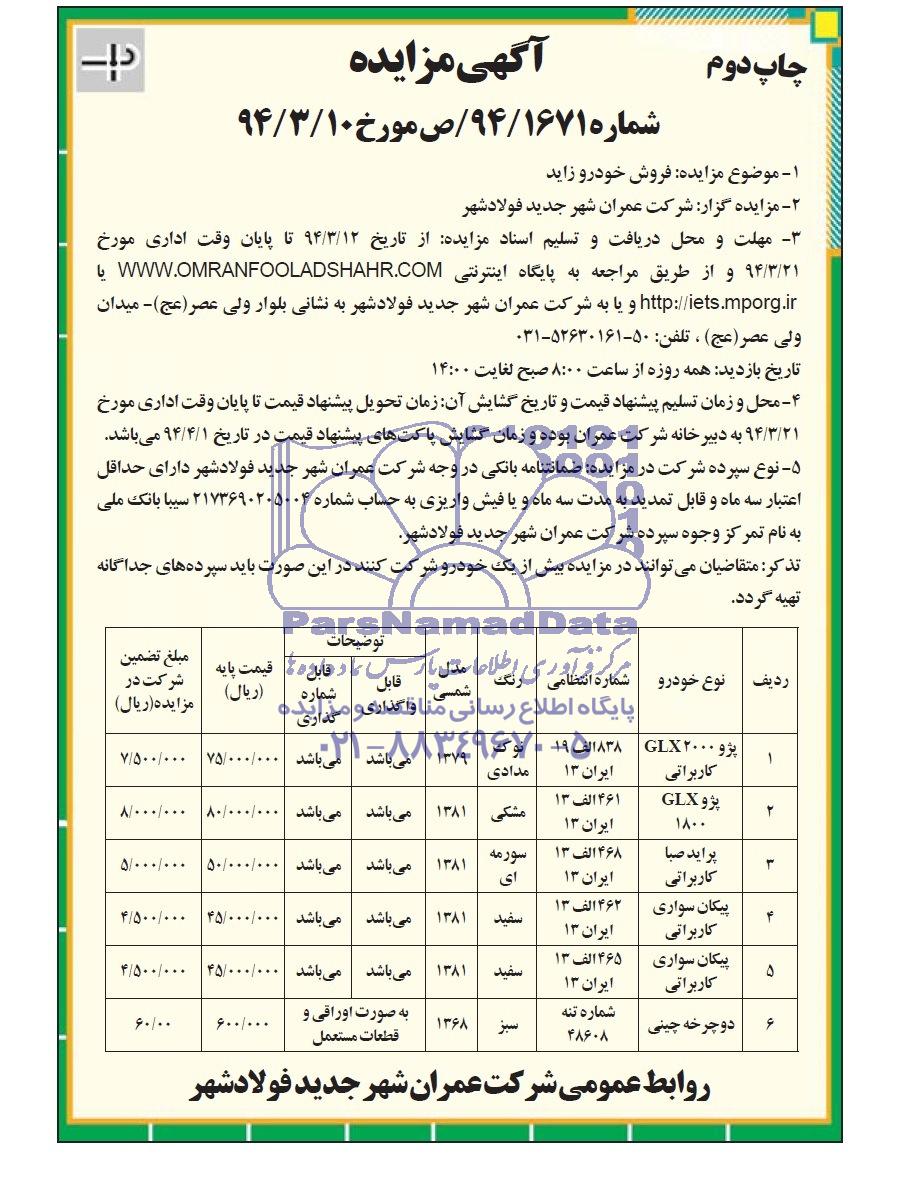 چاپ دوم
آگهی مزایده
شماره ۹۴/۱۶۷۱/ص مورخ ۹۴/۳/۱۰
۱- موضوع مزایده: فروش خودرو زاید
۲- مزایده گزار: شرکت عمران شهر جدید فولادشهر
۳- مهلت و محل دریافت و تسلیم اسناد مزایده: از تاریخ ۹۴/۳/۱۲ تا پایان وقت اداری مورخ
۹۴/۳/۲۱ و از طریق مراجعه به پایگاه اینترنتی WWW.OMRANFOOLADSHAHR.COM یا
http://iets.mporg.ir و یا به شرکت عمران شهر جدید فولادشهر به نشانی بلوار ولی عصر(عج)- میدان
ولی عصر(عج) ، تلفن: ۵۰-۵۲۶۳۰۱۶۱-۰۳۱
تاریخ بازدید: همه روزه از ساعت ۸:۰۰ صبح لغایت ۱۴:۰۰
۴- محل و زمان تسلیم پیشنهاد قیمت و تاریخ گشایش آن: زمان تحویل پیشنهاد قیمت تا پایان وقت اداری مورخ
۹۴/۳/۲۱ به دبیرخانه شرکت عمران بوده و زمان گشایش پاکت‌های پیشنهاد قیمت در تاریخ ۹۴/۴/۱ می‌باشد.
۵- نوع سپرده شرکت در مزایده: ضمانتنامه بانکی در وجه شرکت عمران شهر جدید فولادشهر دارای حداقل
اعتبار سه ماه و قابل تمدید به مدت سه ماه و یا فیش واریزی به حساب شماره ۲۱۷۳۶۹۰۲۰۵۰۰۴ سیبا بانک ملی
به نام تمرکز وجوه سپرده شرکت عمران شهر جدید فولادشهر.
تذکر: متقاضیان می‌توانند در مزایده بیش از یک خودرو شرکت کنند در این صورت باید سپرده‌های جداگانه
تهیه گردد.
ParsNamadData
مرکز فرآوری اطلاعات پارس نماد داده‌ها
پایگاه اطلاع رسانی مناقصه و مزایده
۰۲۱-۸۸۳۴۹۶۷۰-۵
ردیف نوع خودرو شماره انتظامی رنگ مدل شمسی توضیحات قابل واگذاری قابل شماره گذاری قیمت پایه (ریال) مبلغ تضمین شرکت در مزایده(ریال)
۱ پژو GLX ۲۰۰۰ کاربراتی ۸۳۸الف ۱۹ ایران ۱۳ نوک مدادی ۱۳۷۹ می‌باشد می‌باشد ۷۵/۰۰۰/۰۰۰ ۷/۵۰۰/۰۰۰
۲ پژو GLX ۱۸۰۰ ۴۶۱الف ۱۳ ایران ۱۳ مشکی ۱۳۸۱ می‌باشد می‌باشد ۸۰/۰۰۰/۰۰۰ ۸/۰۰۰/۰۰۰
۳ پراید صبا کاربراتی ۴۶۸الف ۱۳ ایران ۱۳ سورمه ای ۱۳۸۱ می‌باشد می‌باشد ۵۰/۰۰۰/۰۰۰ ۵/۰۰۰/۰۰۰
۴ پیکان سواری کاربراتی ۴۶۲الف ۱۳ ایران ۱۳ سفید ۱۳۸۱ می‌باشد می‌باشد ۴۵/۰۰۰/۰۰۰ ۴/۵۰۰/۰۰۰
۵ پیکان سواری کاربراتی ۴۶۵الف ۱۳ ایران ۱۳ سفید ۱۳۸۱ می‌باشد می‌باشد ۴۵/۰۰۰/۰۰۰ ۴/۵۰۰/۰۰۰
۶ دوچرخه چینی شماره تنه ۴۸۶۰۸ سبز ۱۳۶۸ به صورت اوراقی و قطعات مستعمل ۶۰۰/۰۰۰ ۶۰/۰۰
روابط عمومی شرکت عمران شهر جدید فولادشهر